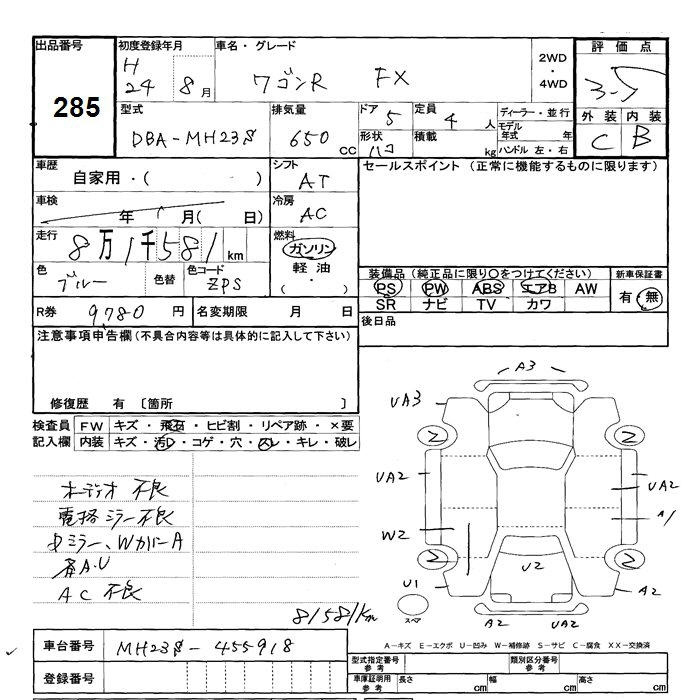 出品番号 初度登録年月 車名・グレード 2WD・4WD 評価点
285 H24 8月 ワゴンR FX 3-5
型式 排気量 ドア 5 定員 4人 ディーラー・並行 外装 内装
DBA-MH23S 650CC 形状 ハコ 積載 kg モデル年式 年 C B
ハンドル 左・右
車歴 シフト セールスポイント (正常に機能するものに限ります)
自家用・( ) AT
車検 冷房
年 月( 日) AC
走行 燃料
8万1千581km ガソリン
色 色替 色コード 軽油 装備品(純正品に限り○をつけてください) 新車保証書
ブルー ZPS ・( ) PS PW ABS エアB AW 有・無
SR ナビ TV カワ
R券 9780円 名変期限 月 日 後日品
注意事項申告欄(不具合内容等は具体的に記入して下さい)
修復歴 有 〔箇所 〕
検査員 FW キズ・飛石・ヒビ割・リペア跡・×要
記入欄 内装 キズ・汚レ・コゲ・穴・スレ・キレ・破レ
オーディオ 不良
電格ミラー不良
中ミラー、WカバーA
AC 不良
81581km
A3
UA3
2 2
UA2 UA2
W2 A1
2 2
U2
U1 A2
スペア A2 UA2
車台番号 MH23S-455918
A-キズ E-エクボ U-凹み W-補修跡 S-サビ C-腐食 XX-交換済
登録番号
型式指定番号 参考 類別区分番号 参考
車庫証明用 参考 長さ cm 幅 cm 高さ cm